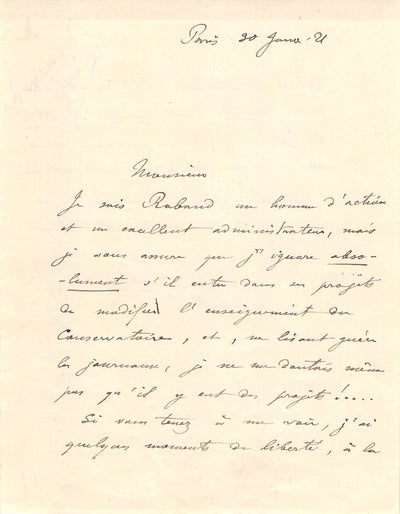 Paris 30 Janv. 21
Monsieur
Je sais Rabaud un homme d'action
et un excellent administrateur, mais
je vous assure que j'ignore abso-
-lument s'il entre dans ses projets
de modifier l'enseignement du
Conservatoire, et, ne lisant guère
les journaux, je ne me doutais même
pas qu'il y eut des projets!....
Si vous tenez à me voir, j'ai
quelques moments de liberté, à la